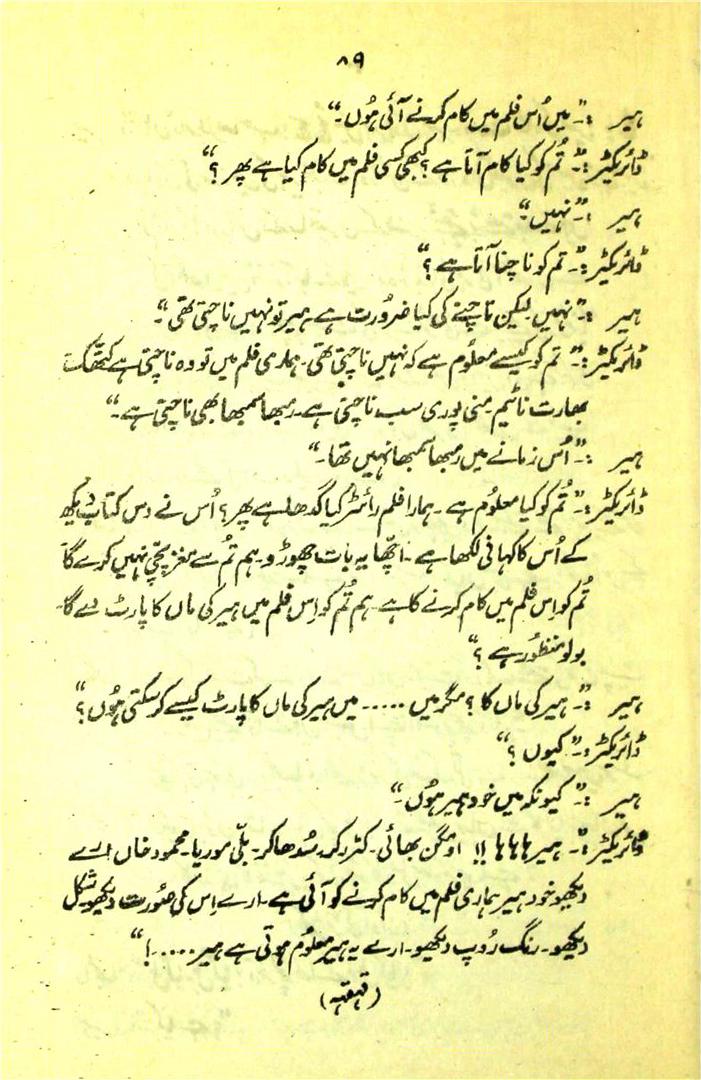 ۸۹
ہیر :۔ "میں اُس فلم میں کام کرنے آئی ہُوں۔"
ڈائریکٹر :۔ "تُم کو کیا کام آتا ہے؟ کبھی کسی فلم میں کام کیا ہے پھر؟"
ہیر :۔ "نہیں"
ڈائریکٹر :۔ "تم کو ناچنا آتا ہے؟"
ہیر :۔ "نہیں لیکن ناچنے کی کیا ضرورت ہے ہیر تو نہیں ناچتی تھی۔"
ڈائریکٹر :۔ "تم کو کیسے معلوُم ہے کہ نہیں ناچتی تھی۔ ہماری فلم میں تو وہ ناچتی ہے کتھک
بھارت ناٹیم منی پوری سب ناچتی ہے۔ رمبھا سمبھا بھی ناچتی ہے۔"
ہیر :۔ "اُس زمانے میں رمبھا سمبھا نہیں تھا۔"
ڈائریکٹر :۔ "تُم کو کیا معلوُم ہے۔ ہمارا فلم رائٹر کیا گدھا ہے پھر؟ اُس نے دس کتاب دیکھ
کے اُس کا کہانی لکھا ہے۔ اچھا یہ بات چھوڑو۔ ہم تُم سے مغز پچّی نہیں کرے گا
تُم کو اِس فلم میں کام کرنے کا ہے۔ ہم تُم کو اِس فلم میں ہیر کی ماں کا پارٹ دے گا۔
بولو منظور ہے؟"
ہیر :۔ "ہیر کی ماں کا؟ مگر میں ..... میں ہیر کی ماں کا پارٹ کیسے کر سکتی ہُوں؟"
ڈائریکٹر :۔ "کیوں؟"
ہیر :۔ "کیونکہ میں خود ہیر ہوُں۔"
ڈائریکٹر :۔ "ہیر ہاہاہا !! او چھگن بھائی۔ کٹر کر۔ سُدھاکر۔ بلّی موریا۔ محمود خاں ارے
دیکھو خود ہیر ہماری فلم میں کام کرنے کو آئی ہے۔ ارے اِس کی صُورت دیکھو شکل
دیکھو۔ رنگ رُوپ دیکھو۔ ارے یہ ہیر معلوُم ہوتی ہے ہیر ....!"
(قہقہہ)